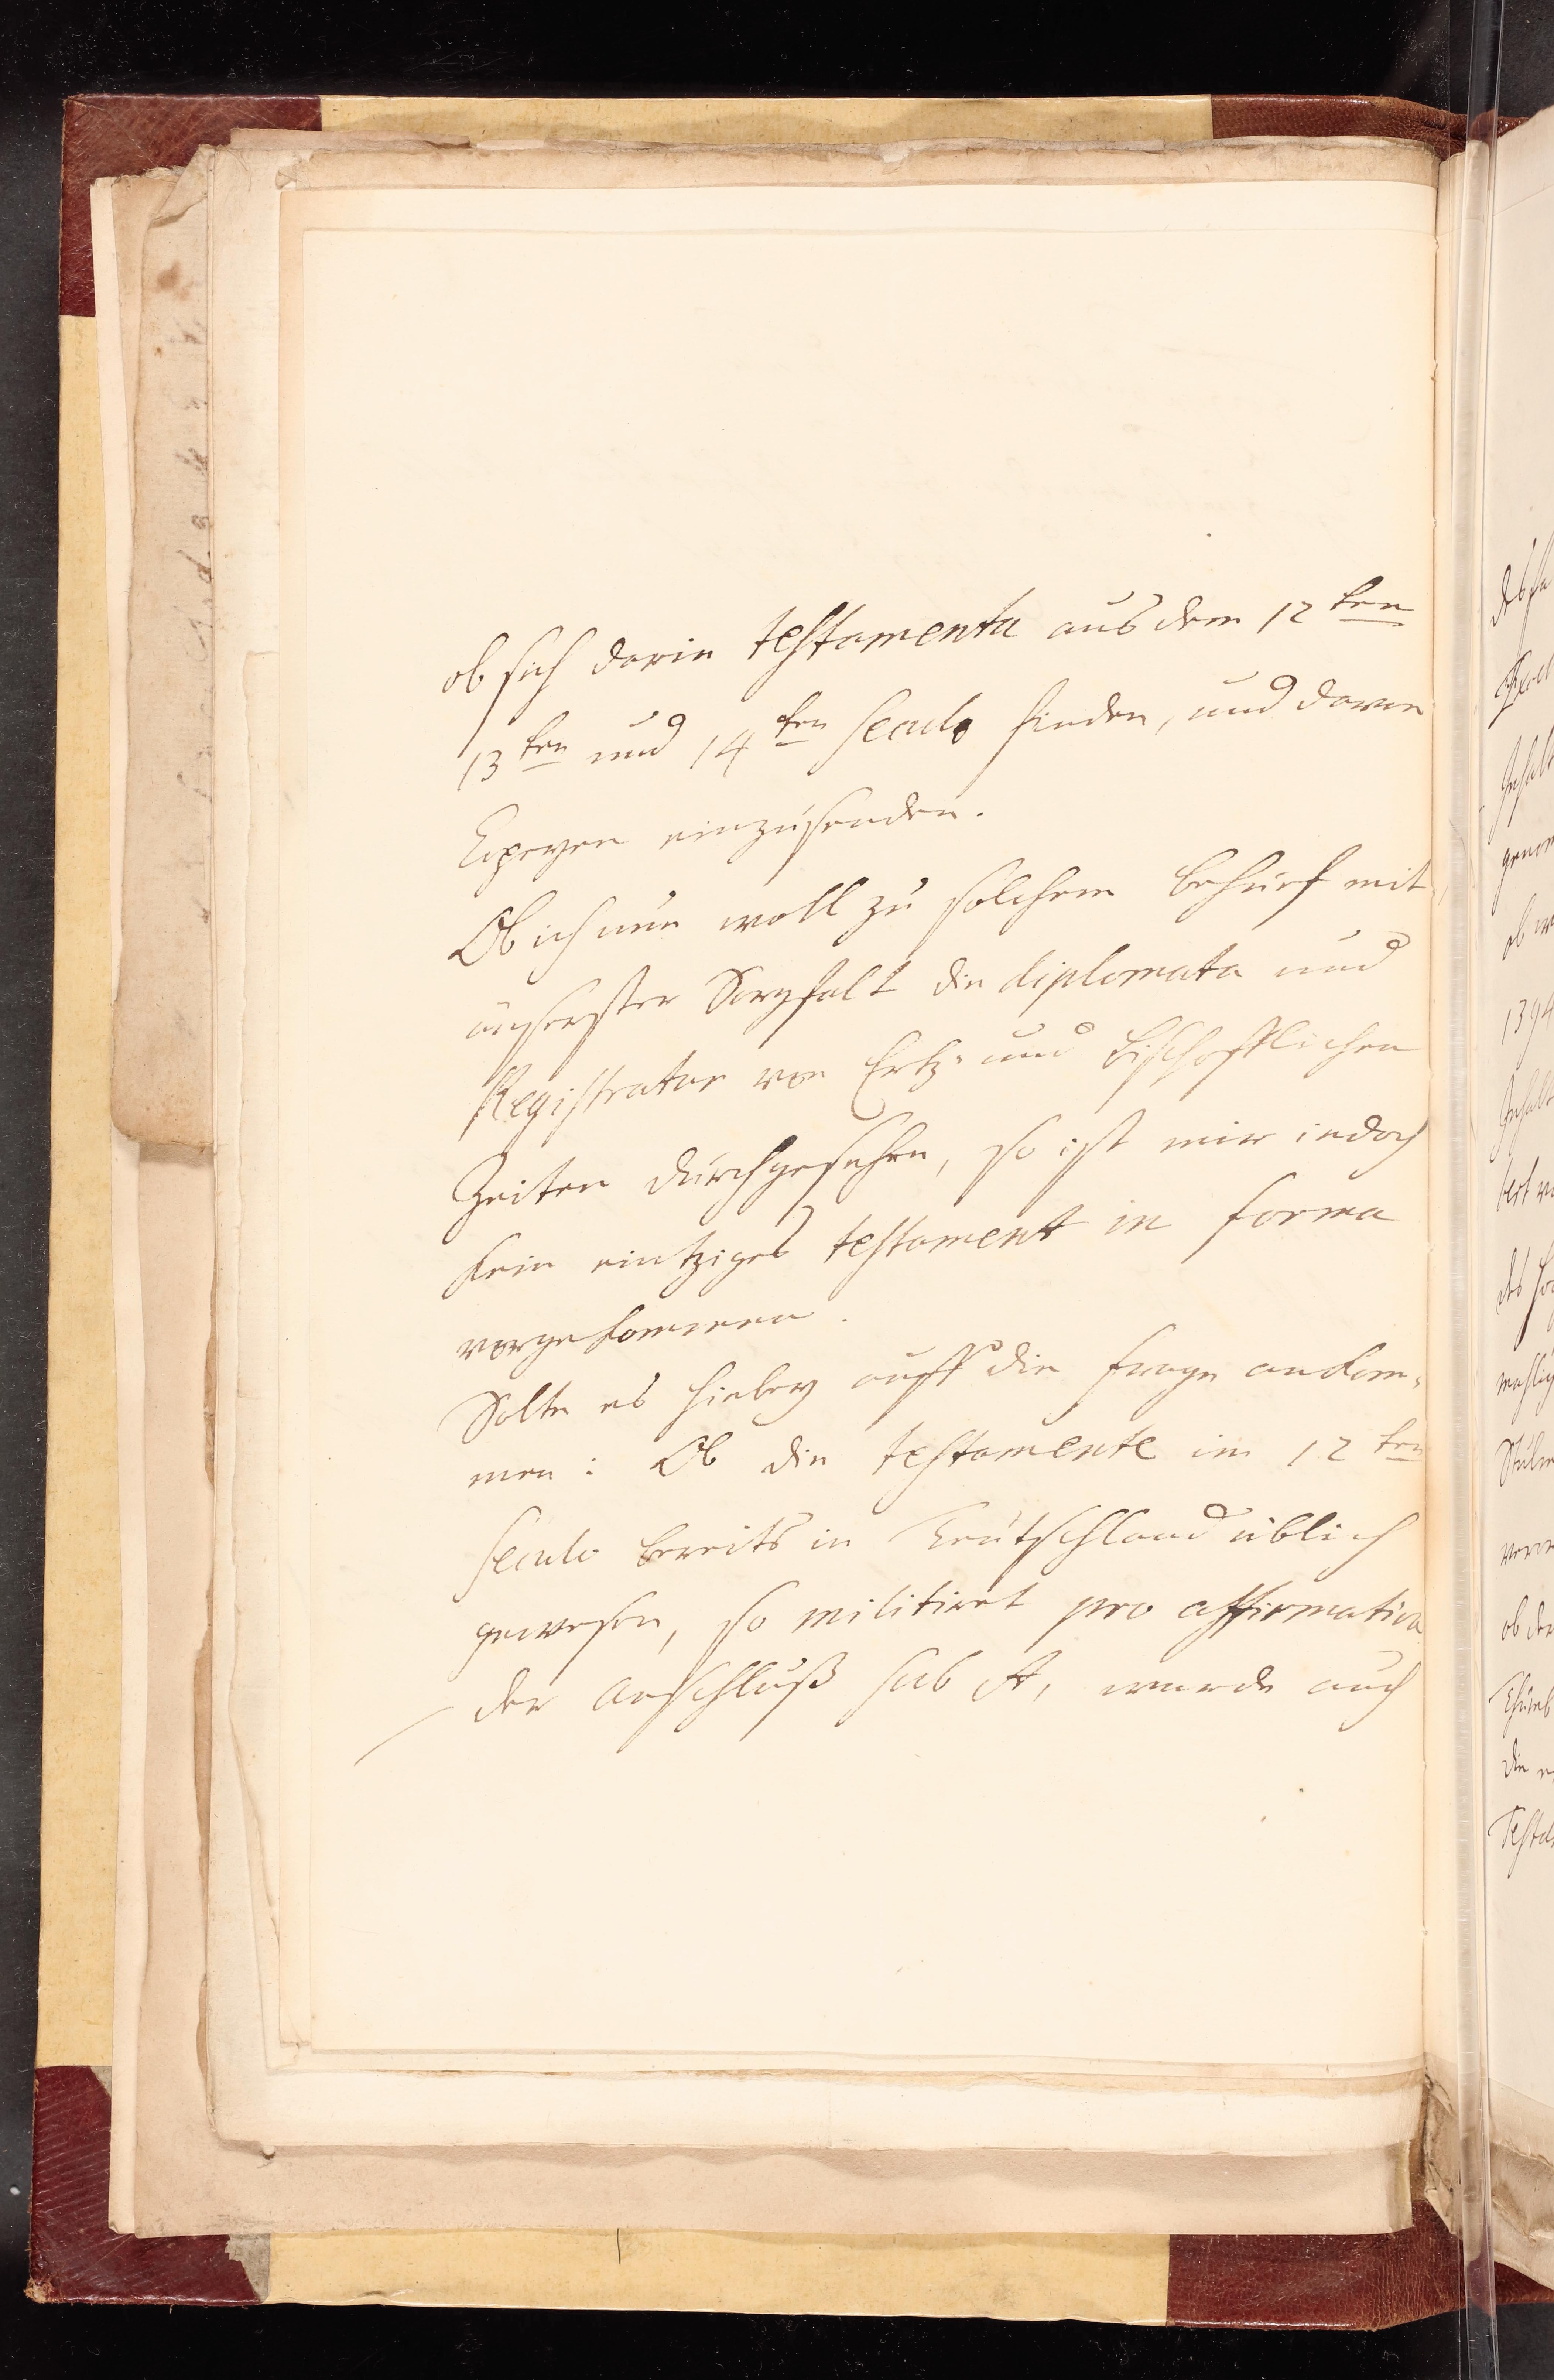 ob sich darin testamenta aus dem 12ten
13ten und 14ten seculo finden, und davon
Copeyen einzusenden.
Ob ich nun woll zu solchem behuef mit
äusserster Sorgfalt die diplomata und
Registratur von Ertz- und Bischofflichen
Zeiten durchgesehen, so ist mir iedoch
kein eintziges testament in forma
vorgekommen.
Solte es hiebey auff die frage ankom-
men: Ob die testamente im 12ten
seculo bereits in Teutschland üblich
gewesen, so militiret pro affirmativa
der anschluß sub A, wurde auch